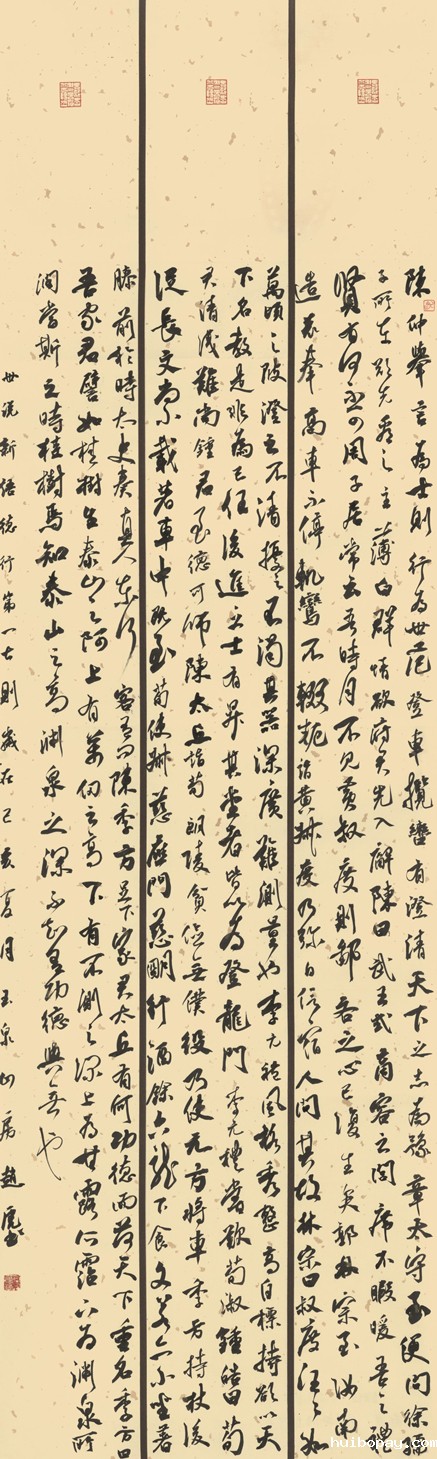 陳仲舉言為士則行為世范登車攬轡有澄清天下之志為豫章太守至便問徐孺
子所在欲先看之主薄白群情欲府君先入廨陳曰武王式商容之閭席不暇暖吾之禮
賢有何不可周子居常云吾時月不見黃叔度則鄙吝之心已復生矣郭林宗至汝南
造袁奉高車不停軌鸞不輟軛詣黃叔度乃彌日信宿人問其故林宗曰叔度汪汪如
萬頃之陂澄之不清擾之不濁其器深廣難測量也李元禮風格秀整高自標持欲以天
下名教是非為己任後進之士有昇其堂者皆以為登龍門李元禮嘗歎荀淑鍾皓曰荀
君清識難尚鍾君至德可師陳太丘詣荀朗陵貧儉無僕役乃使元方將車季方持杖後
從長文尚小載著車中既至荀使叔慈應門慈明行酒餘六龍下食文若亦小坐著
膝前於時太史奏真人東行客有問陳季方足下家君太丘有何功德而荷天下重名季方曰
吾家君譬如桂樹生泰山之阿上有萬仞之高下有不測之深上為甘露所霑下為淵泉所
潤當斯之時桂樹焉知泰山之高淵泉之深不知有功德與無也
世說新語德行第一七則歲在己亥夏月玉泉山房趙
huibopay.com